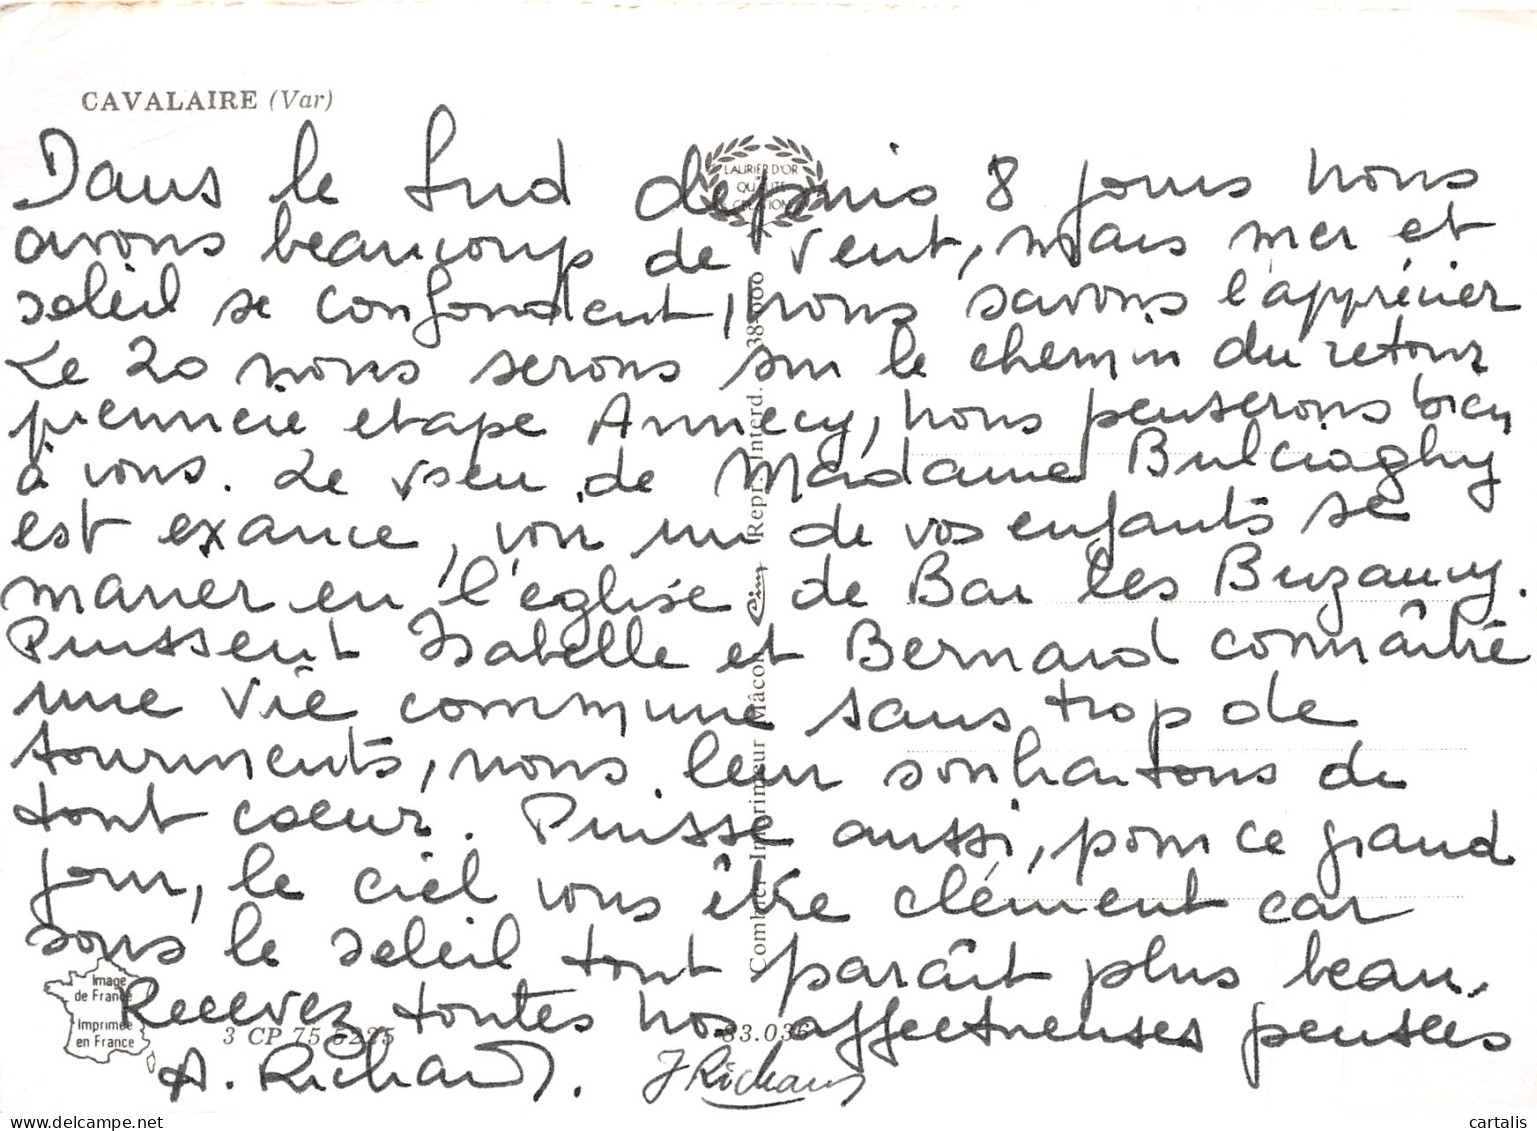 CAVALAIRE (Var)
LAURIER D'OR
QUALITE
CREATION
Dans le Sud depuis 8 jours nous
avons beaucoup de vent, mais mer et
soleil se confondent, nous savons l'apprécier
Le 20 nous serons sur le chemin du retour
première etape Annecy, nous penserons bien
à vous. Le voeu de Madame
est exancé, voir un de vos enfants se
marier en l'église de Bar les Buzancy.
Puissent Isabelle et Bernard connaître
une vie commune sans trop de
tourments, nous leur souhaitons de
tout coeur. Puisse aussi, pour ce grand
jour, le ciel vous être clément car
sous le soleil tout paraît plus beau.
Recevez toutes nos affectueuses pensées
A. Richard. J Richard
Image
de France
Imprimée
en France
3 CP 75 5225
83.036
Combier Imprimeur Mâcon Cim Repr. Interd.
cartalis